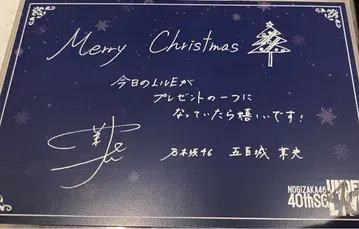 Merry Christmas
今日のLIVEが
プレゼントの一つに
なっていたら嬉しいです!
乃木坂46 五百城 茉央
NOGIZAKA46
40thSG